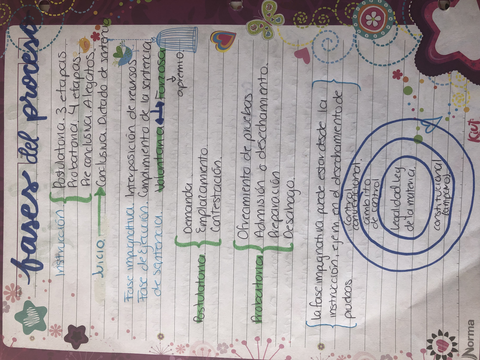 fases del proceso
Instrucción
Postulatoria 3 etapas
Probatoria 4 etapas
Preconclusiva Alegatos
Juicio → Conclusiva Dictado de sentencia
Fase impugnativa Interposición de recursos
Fase de Ejecución Cumplimiento de la sentencia
de sentencia. Voluntaria ↔ Forzosa
apremio
Postulatoria
Demanda.
Emplazamiento.
Contestación.
Probatoria
Ofrecimiento de pruebas.
Admisión o desechamiento.
Preparación
Desahogo.
La fase impugnativa puede estar desde la
instrucción, ejm. en el desechamiento de
pruebas
control
convencional
ambito
de control
legalidad ley
de la materia
constitucional
(amparo)
Kiut
Norma